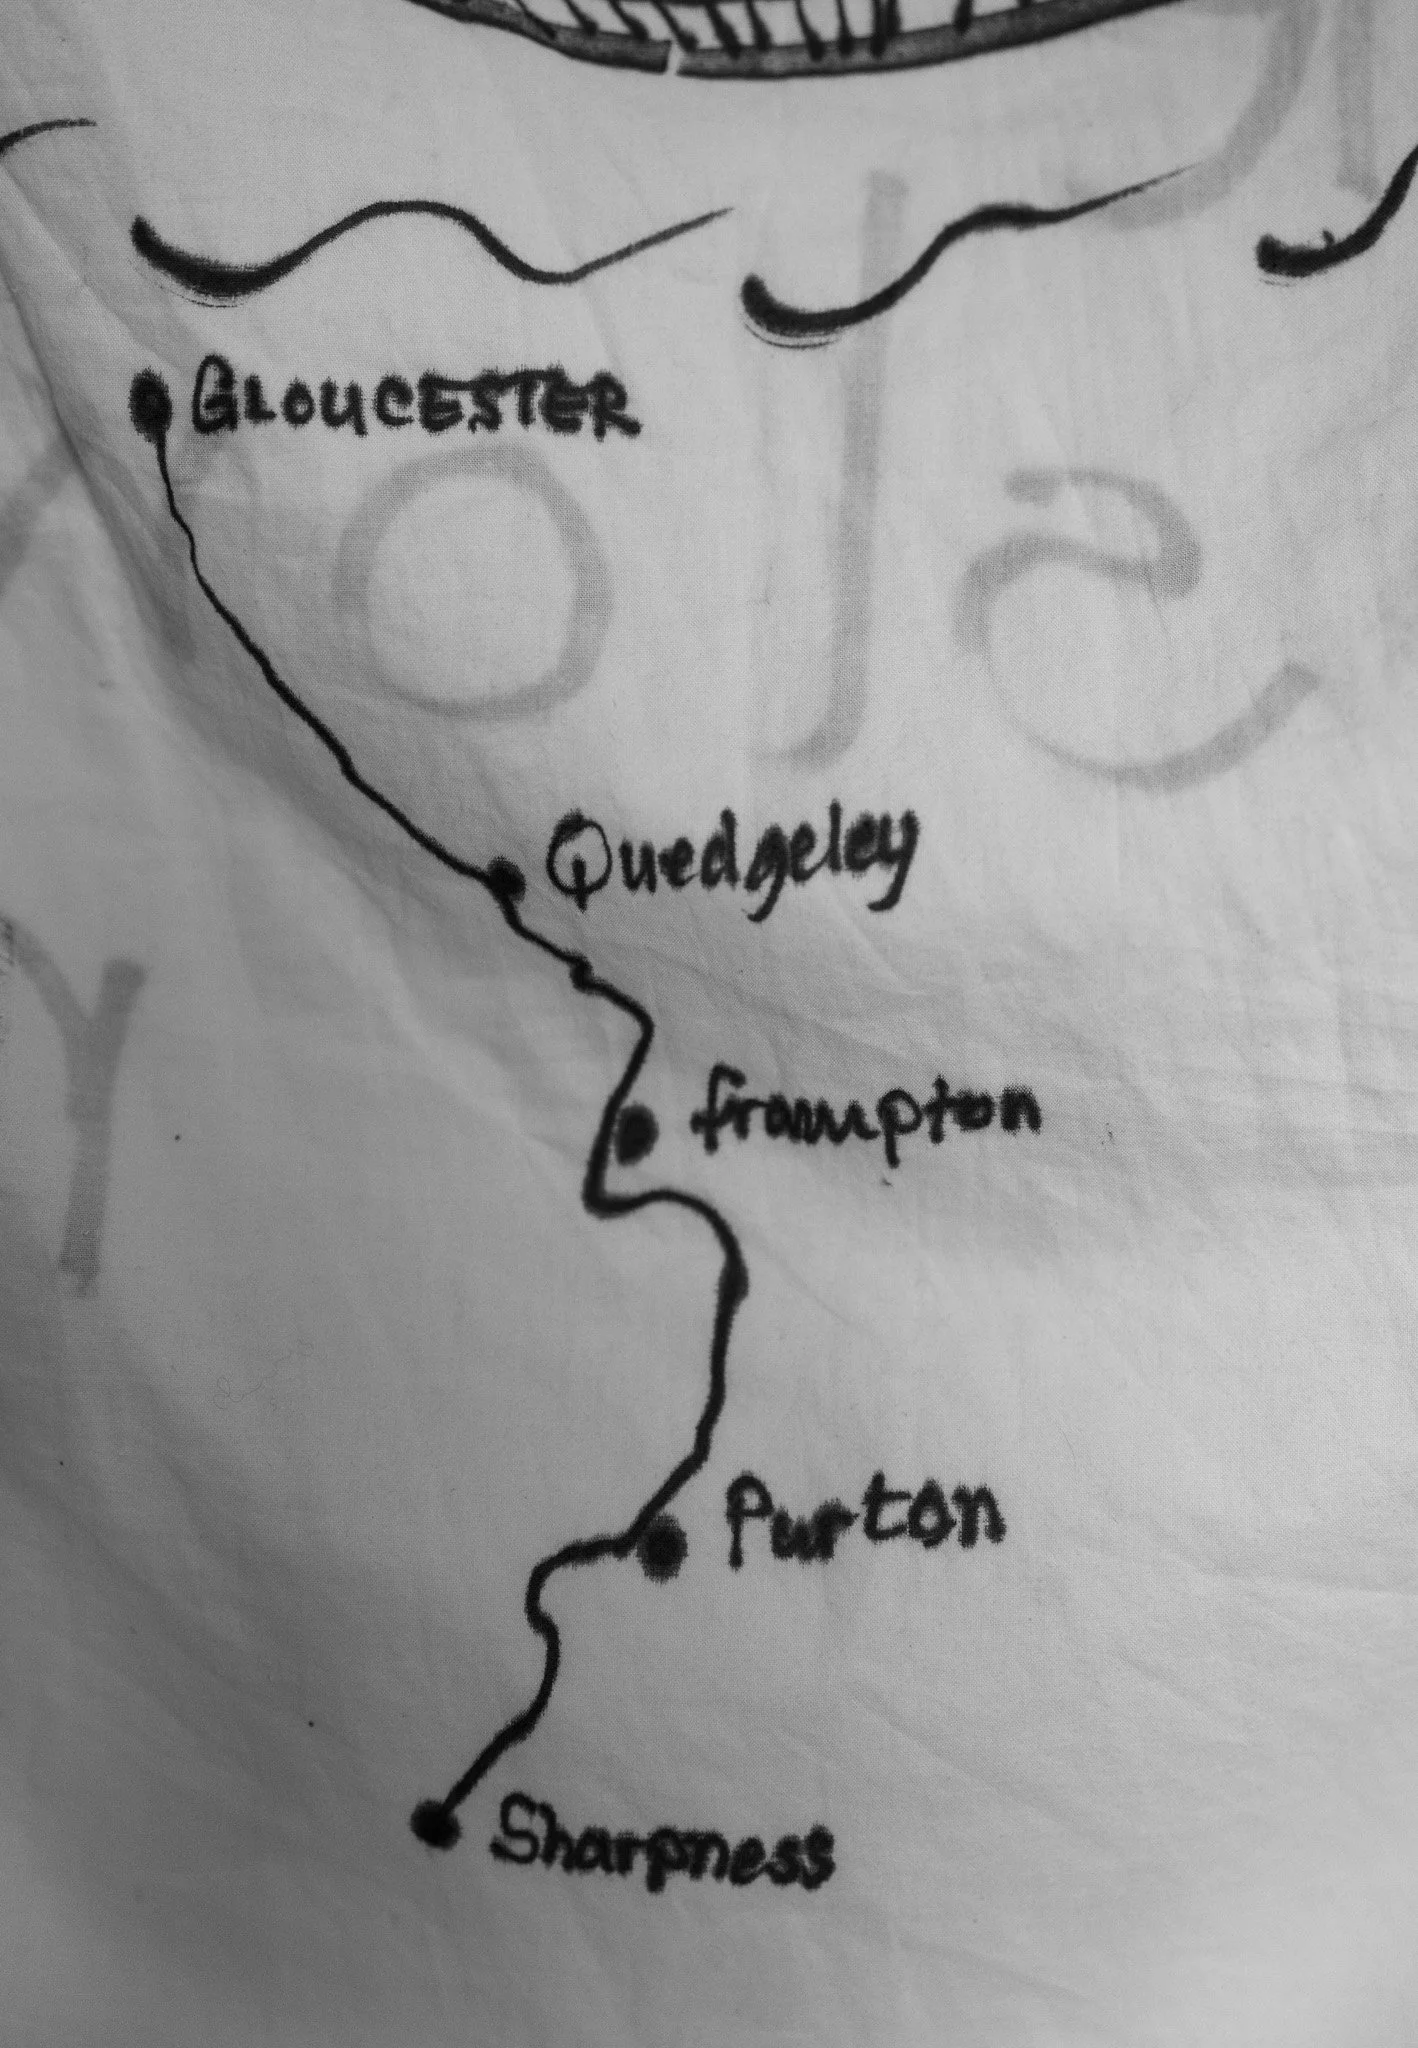 GLOUCESTER
Quedgeley
frampton
Purton
Sharpness